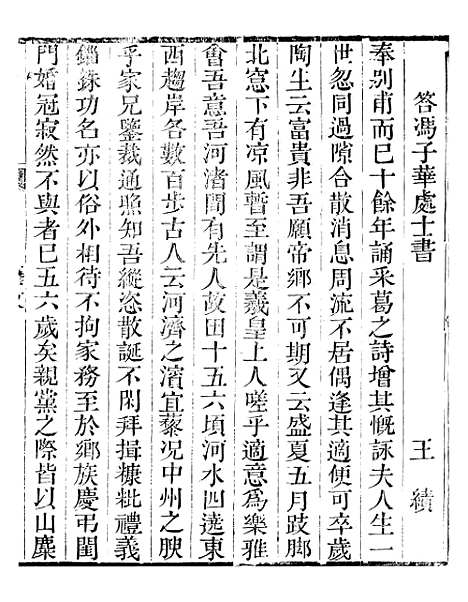 答馮子華處士書　王績
奉別甫而巳十餘年誦采葛之詩增其慨詠夫人生一
世忽同過隙合散消息周流不居偶逢其適便可卒歲
陶生云富貴非吾願帝鄉不可期又云盛夏五月跂脚
北窓下有凉風暫至謂是羲皇上人嗟乎適意爲樂雅
會吾意吾河渚閒有先人故田十五六頃河水四遶東
西趨岸各數百步古人云河濟之濱宜藜况中州之腴
乎家兄鑒裁通照知吾縱恣散誕不閑拜揖糠粃禮義
錙銖功名亦以俗外相待不拘家務至於鄉族慶弔閨
門婚冠寂然不與者巳五六歲矣親黨之際皆以山麋